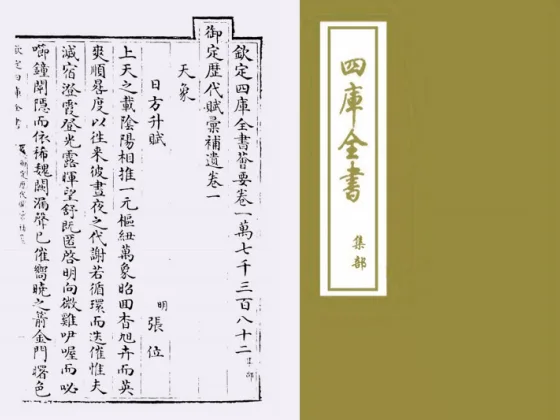 欽定四庫全書薈要卷一萬七千三百八十二集部
御定歴代賦彙補遺卷一
天象
日方升賦
明 張位
上天之載陰陽相推一元樞紐萬象昭回杳旭卉而英
爽順晷度以徃来彼晝夜之代謝若循環而迭催惟夫
減宿澄霞登光露輝望舒既匿啓明向微雞咿喔而呦
嘲鐘闇隠而依稀魏闕漏聲已催嚮曉之箭金門曙色
欽定四庫全書
四庫全書
集部